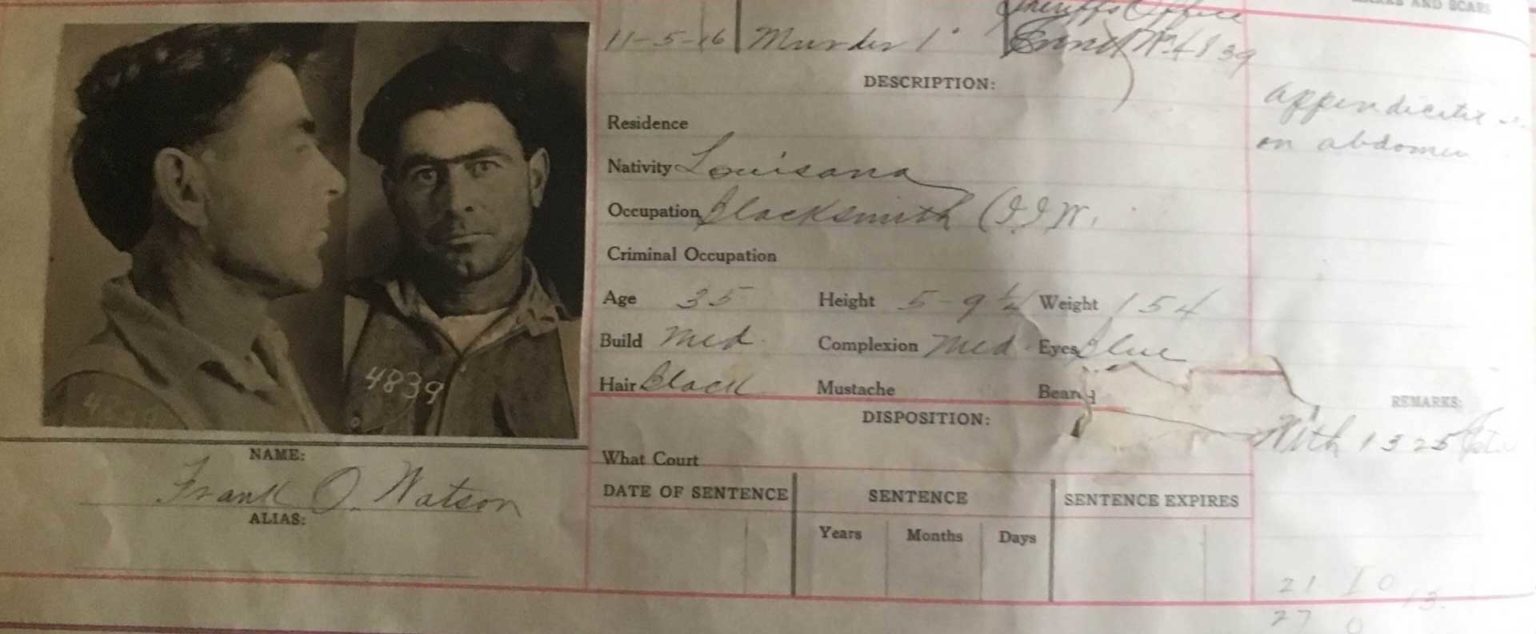 MARKS AND SCARS
Sheriffs Office
11-5-16 Murder 1° 4839
DESCRIPTION:
appendicitis
on abdomen
Residence
Nativity Louisana
Occupation Blacksmith (I.I.W.
Criminal Occupation
Age 35 Height 5-9½ Weight 154
Build Med. Complexion Med Eyes Blue
Hair Black Mustache Beard
REMARKS:
With 1325
DISPOSITION:
What Court
DATE OF SENTENCE SENTENCE SENTENCE EXPIRES
Years Months Days
4839
NAME:
Frank O. Watson
ALIAS:
21 I 0 13.
27 0